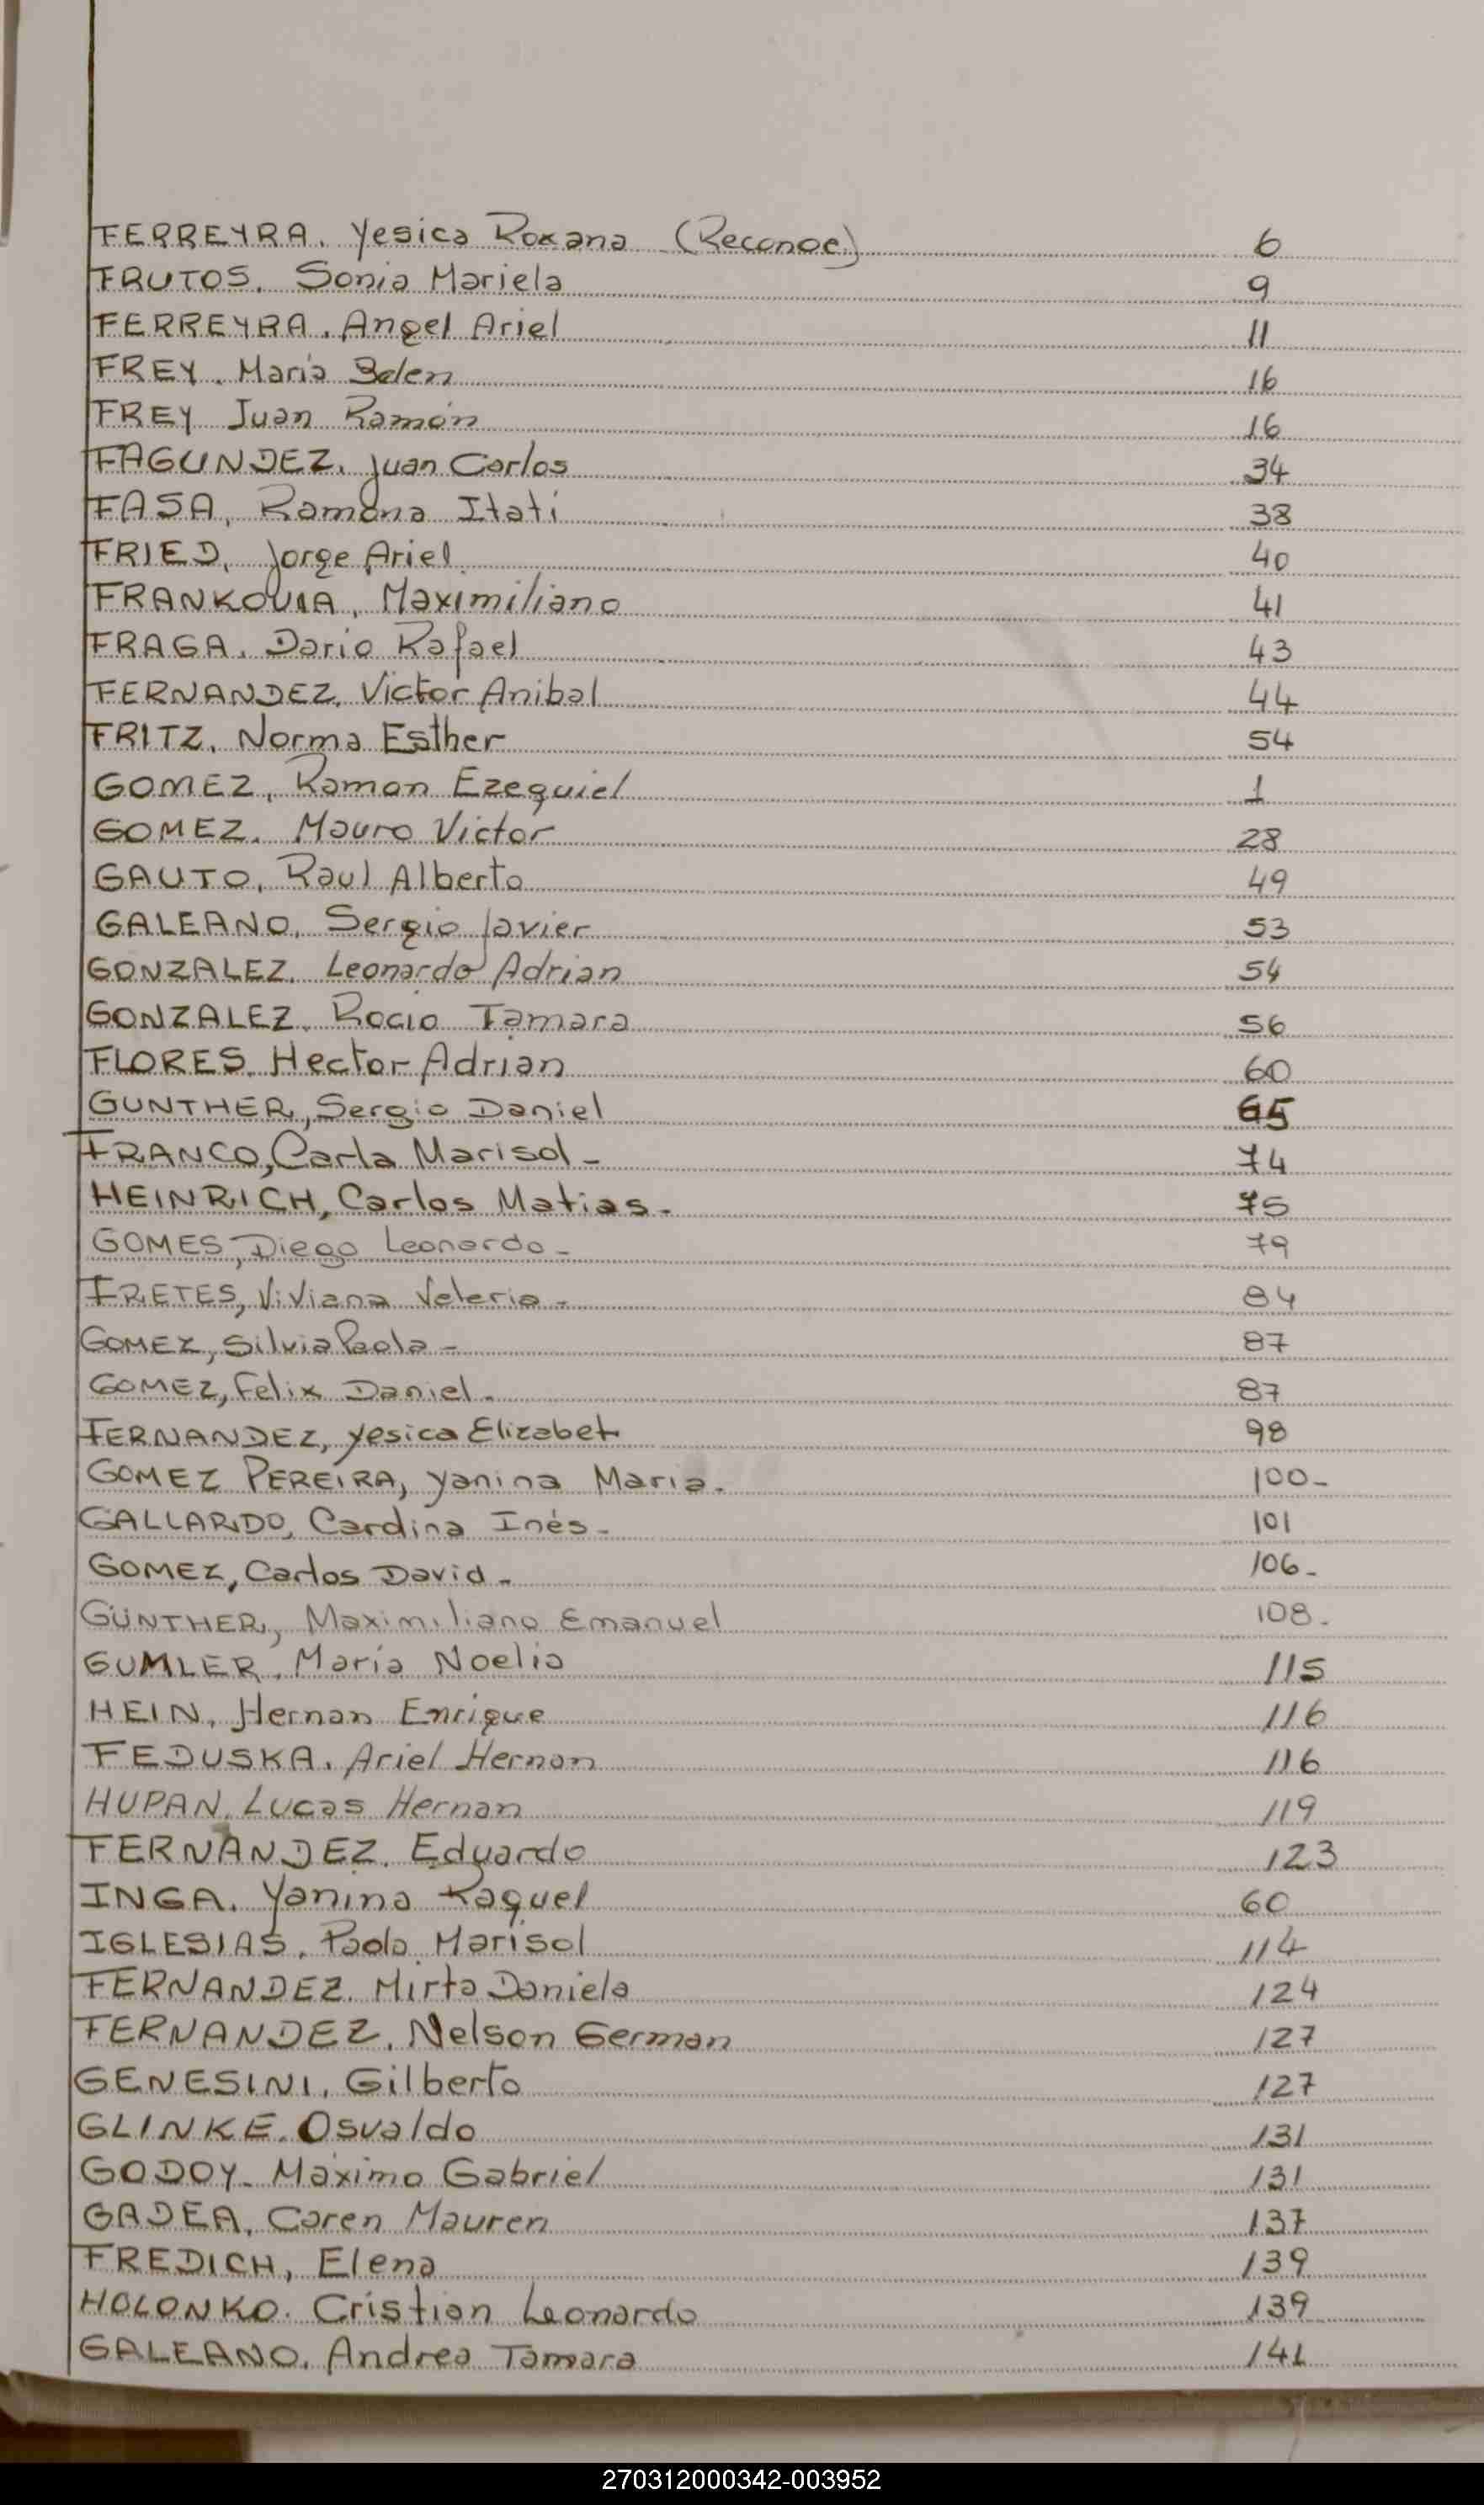 FERREYRA. Yesica Roxana (Reconoc.) 6
FRUTOS. Sonia Mariela 9
FERREYRA. Angel Ariel 11
FREY. María Belen 16
FREY Juan Ramón 16
FAGUNDEZ. Juan Carlos 34
FASA, Ramona Itati 38
FRIED, Jorge Ariel 40
FRANKOVIA, Maximiliano 41
FRAGA. Dario Rafael 43
FERNANDEZ. Victor Anibal 44
FRITZ. Norma Esther 54
GOMEZ, Ramon Ezequiel 1
GOMEZ. Mauro Victor 28
GAUTO, Raul Alberto 49
GALEANO, Sergio Javier 53
GONZALEZ. Leonardo Adrian 54
GONZALEZ. Rocio Tamara 56
FLORES. Hector Adrian 60
GUNTHER, Sergio Daniel 65
FRANCO, Carla Marisol - 74
HEINRICH, Carlos Matias. 75
GOMES, Diego Leonardo - 79
FRETES, Viviana Valeria - 84
GOMEZ, Silvia Paola - 87
GOMEZ, Felix Daniel. 87
FERNANDEZ, Yesica Elizabet 98
GOMEZ PEREIRA, Yanina Maria. 100-
GALLARDO, Carolina Inés - 101
GOMEZ, Carlos David - 106-
GÜNTHER, Maximiliano Emanuel 108.
GUMLER, María Noelia 115
HEIN, Hernan Enrique 116
FEDUSKA. Ariel Hernan 116
HUPAN, Lucas Hernan 119
FERNANDEZ. Eduardo 123
INGA. Yanina Raquel 60
IGLESIAS. Paola Marisol 114
FERNANDEZ. Mirta Daniela 124
FERNANDEZ. Nelson German 127
GENESINI. Gilberto 127
GLINKE. Osvaldo 131
GODOY- Máximo Gabriel 131
GADEA, Caren Mauren 137
FREDICH, Elena 139
HOLONKO. Cristian Leonardo 139
GALEANO. Andrea Tamara 141
270312000342-003952